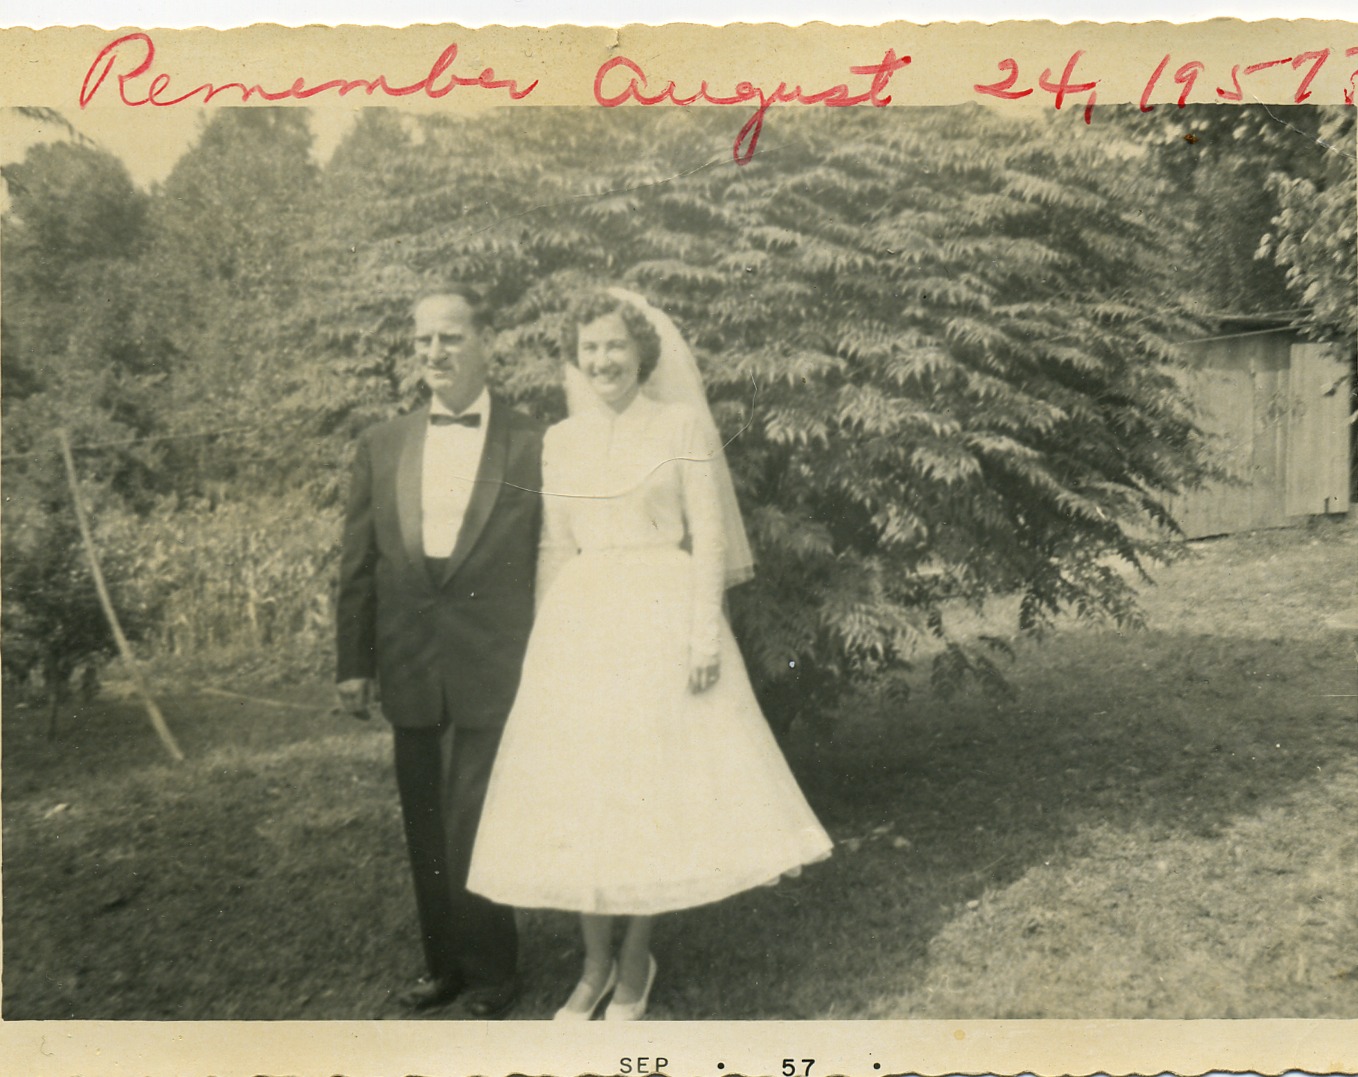 Remember August 24, 1957?
SEP • 57 •